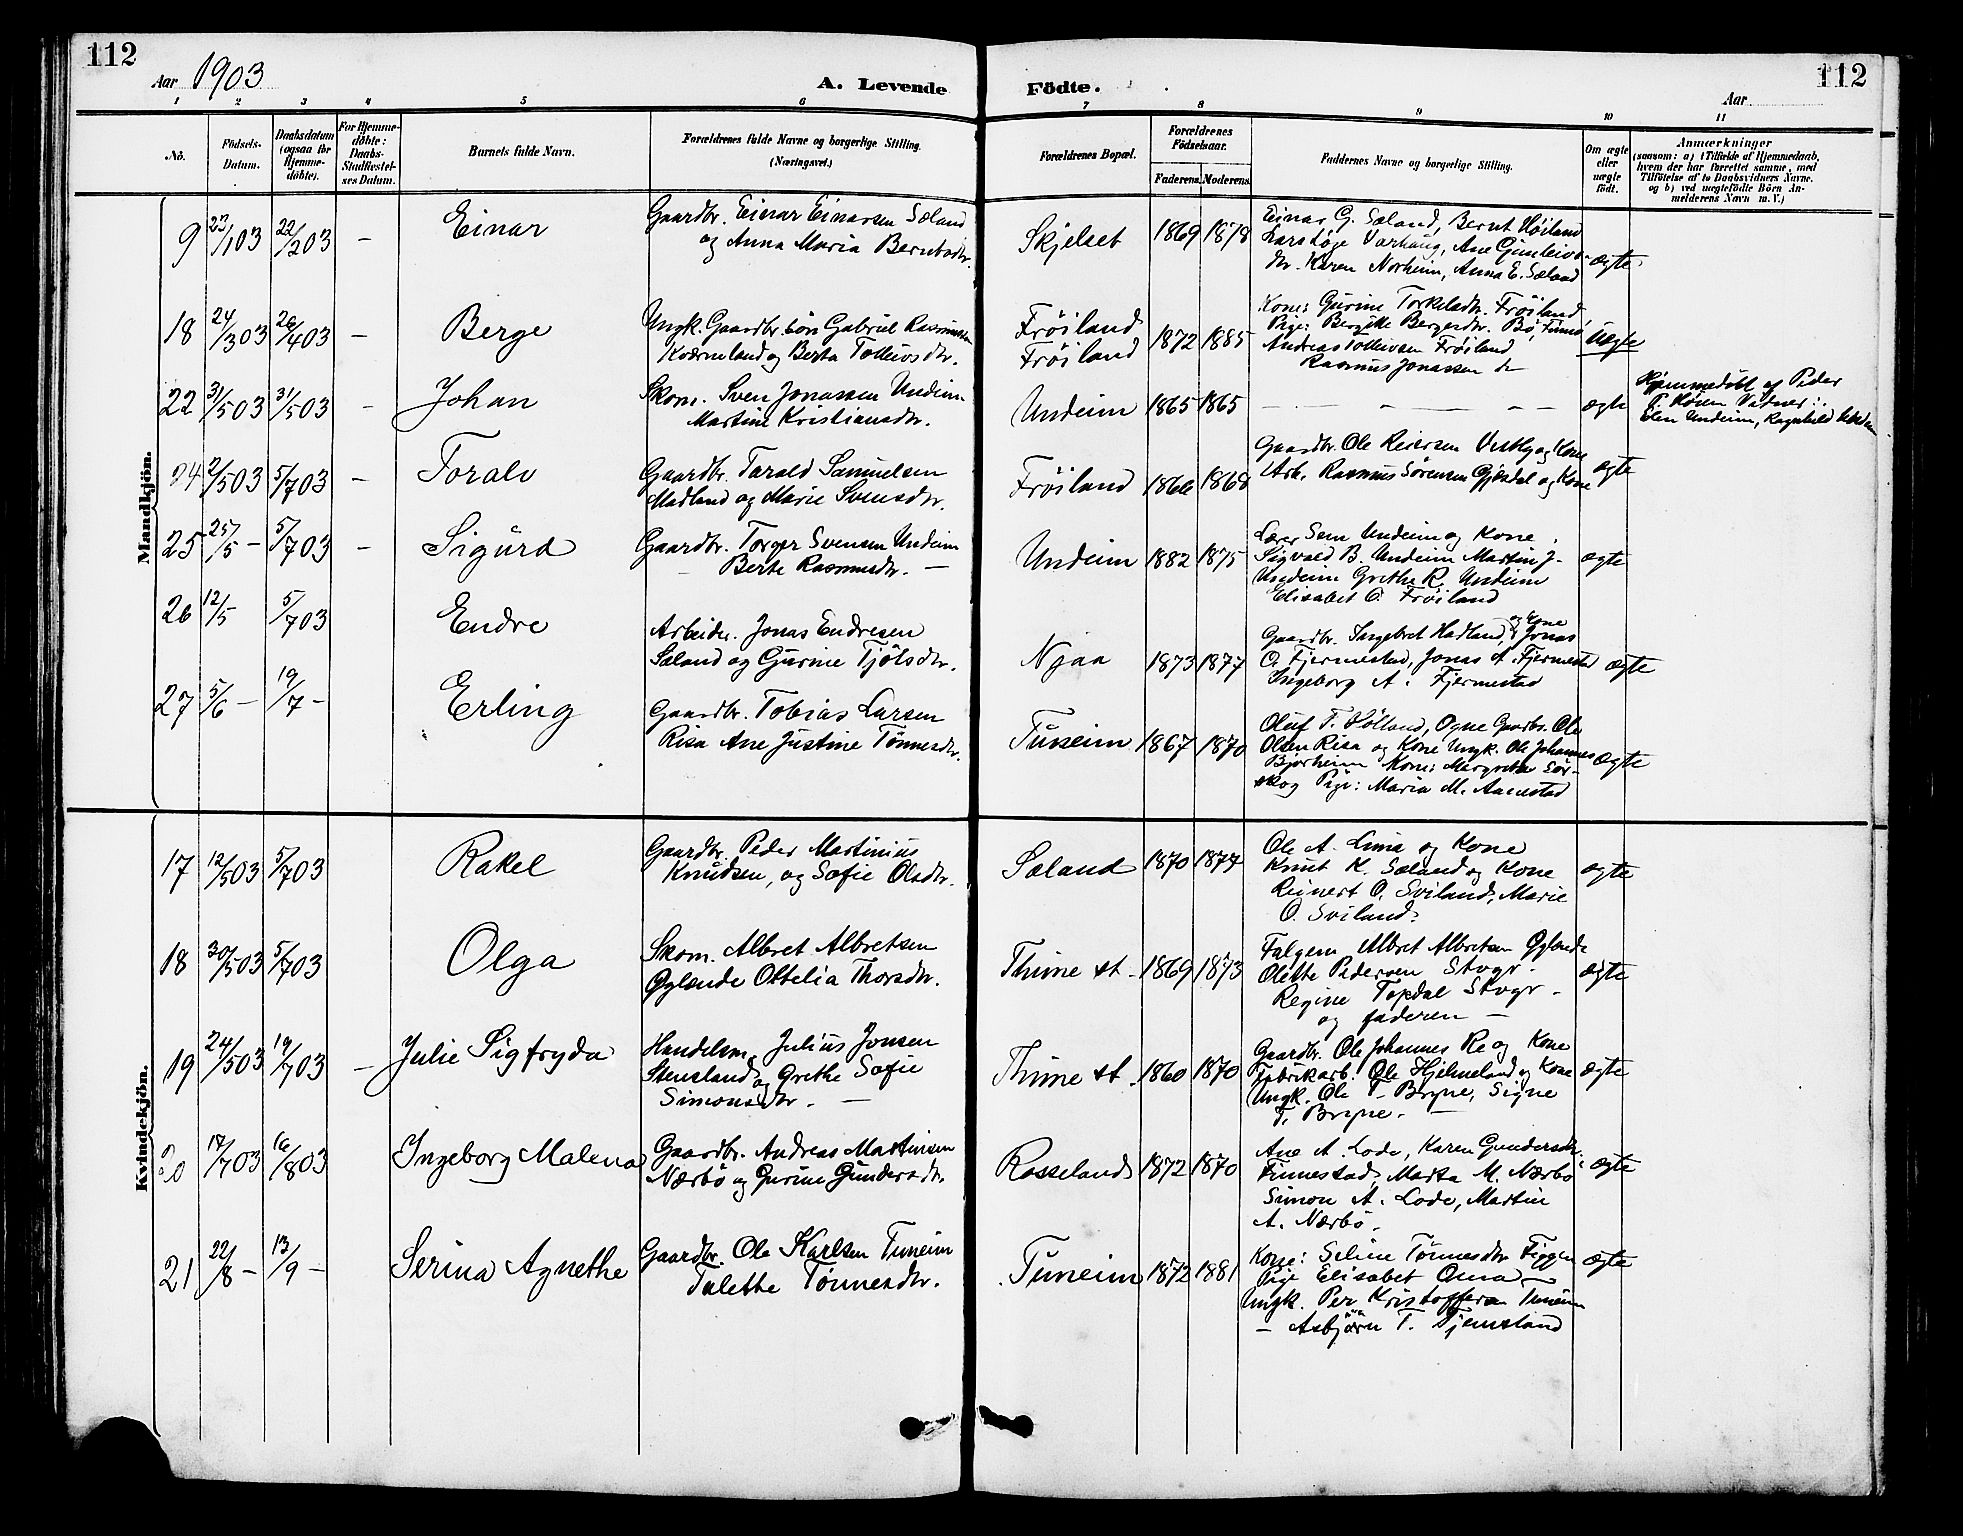 112
Aar 1903
A. Levende
Födte.
Aar
112
1 2 3 4 5 6 7 8 9 10 11
No.
Födsels-
Datum.
Daabsdatum
(ogsaa for
Hjemme-
döbte).
For Hjemme-
döbte:
Daabs-
Stadfæstel-
ses Datum.
Barnets fulde Navn.
Forældrenes fulde Navne og borgerlige Stilling.
(Næringsvei.)
Forældrenes Bopæl.
Forældrenes
Födselsaar.
Faderens. Moderens.
Faddernes Navne og borgerlige Stilling.
Om ægte
eller
uægte
födt.
Anmærkninger
(saasom: a) i Tilfælde af Hjemmedaab,
hvem der har forrettet samme, med
Tilföielse af to Daabsvidners Navne.
og b) ved uægtefödte Börn An-
melderens Navn m. V.)
Mandkjön.
9 23/103 22/203 – Einar
Gaardbr. Einar Einarsen Sæland
og Anna Maria Berntsdtr.
Skjelset 1869 1878
Einar G. Sæland, Bernt Höiland
Lars Höge Varhaug, Ane Gunleivs-
dtr. Karen Norheim, Anna E. Sæland
ægte
18 24/303 26/403 – Berge
Ungk. Gaardbr. sön Gabriel Rasmussen
Kværneland og Berta Tollivsdtr.
Fröiland
Fröiland
1872 1885
Kone: Gurine Torkelsdtr. Fröiland
Pige: Bergitte Bergesdtr. Bö,
Andreas Tollivsen Fröiland
Rasmus Jonassen do
uægte
22 31/503 31/503 – Johan
Skom. Sven Jonassen Undeim
Martine Kristiansdtr.
Undeim 1865 1865
– – – – – –
ægte
Hjemmedöbt af Peder
Vidner:
Elen Undeim, Ragnhild Undeim
24 2/503 5/703 – Toralv
Gaardbr. Tarald Samuelsen
Madland og Marie Svensdtr.
Fröiland 1866 1868
Gaardbr. Ole Reiersen Vestly og Kone
Arb. Rasmus Sörensen Gjesdal og Kone
ægte
25 25/5 – 5/703 – Sigurd
Gaardbr. Torger Svensen Undeim
– Berte Rasmusdtr. –
Undeim 1882 1875
Lærer Sem Undeim og Kone.
Sigvald B. Undeim Martin J.
Undeim Grethe R. Undeim
Elisabet O. Fröiland
ægte
26 12/5 5/703 Endre
Arbeider. Jonas Endresen
Sæland og Gurine Tjölsdtr.
Njaa 1873 1877
og Kone
Gaardbr. Ingebret Hadland, Jonas
O. Fjermestad, Jonas A. Fjermestad
Ingeborg A. Fjermestad
ægte
27 5/6 – 19/7 – Erling
Gaardbr. Tobias Larsen
Risa Ane Justine Tönnesdtr.
Tuneim 1867 1870
Oluf T. Hölland, Ogne Gaardbr. Ole
Olsen Risa og Kone Ungk. Ole Johannes
Bjorheim Kone: Margreta Sör-
skog Pige: Maria M. Aanestad
ægte
Kvindekjön.
17 12/503 5/703 Rakel
Gaardbr. Peder Martinius
Knudsen, og Sofie Olsdtr.
Sæland 1870 1877
Ole A. Lima og Kone
Knut K. Sæland og Kone
Reinert O. Sviland, Marie
O. Sviland.
ægte
18 30/503 5/703 Olga
Skom. Albret Albretsen
Öglænde Ottelia Thorsdtr.
Thime st. 1869 1873
Albret Albretsen Öglænde
Olette Pedersen Stvgr.
Regine Topdal Stvgr –
og faderen –
ægte
19 24/503 19/703 – Julie Sigfryda
Handelsm. Julius Jonsen
Stensland og Grethe Sofie
Simonsdtr. –
Thime st. 1860 1870
Gaardbr. Ole Johannes Re og Kone
Fabrikarb. Ole Hjelmeland og Kone
Ungk. Ole T. Bryne, Signe
T. Bryne. –
ægte
20 17/703 16/803 Ingeborg Malena
Gaardbr. Andreas Martinsen
Nærbö og Gurine Gundersdtr.
Rosseland 1872 1870
Ane A. Lode, Karen Gundersdtr.
Finnestad, Marta M. Nærbö
Simon A. Lode, Martin
A. Nærbö.
ægte
21 22/8 – 13/9 – Serina Agnethe
Gaardbr. Ole Karlsen Tuneim
Talette Tönnesdtr.
Tuneim 1872 1881
Kone: Seline Tönnesdtr Figgen
Pige Elisabet Oma –
Ungk. Per Kristoffersen Tuneim
– Asbjörn T. Tjemsland
ægte